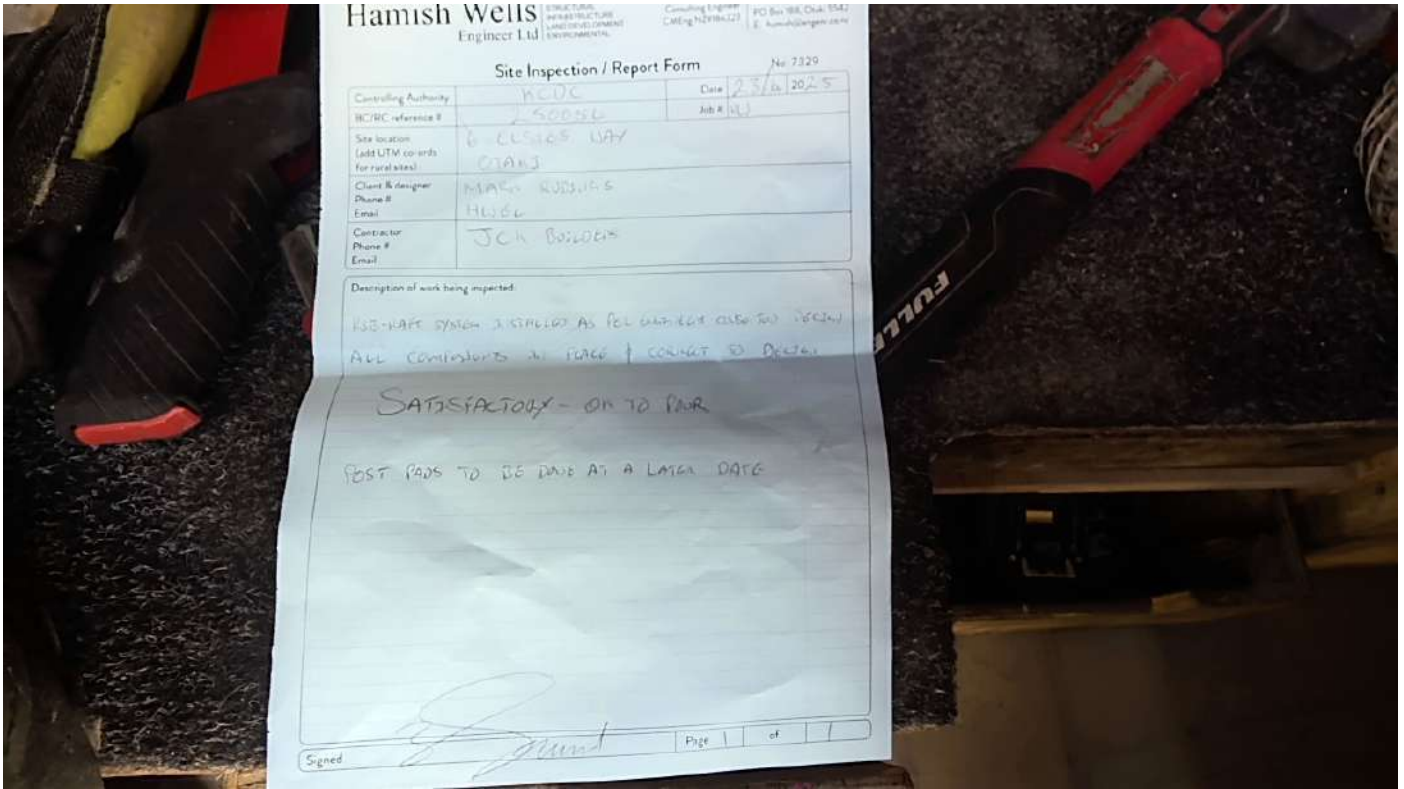 Hamish Wells
Engineer Ltd
STRUCTURAL
INFRASTRUCTURE
LAND DEVELOPMENT
ENVIRONMENTAL
Consulting Engineer
CMEng
PO Box 188, Otaki 5542
Site Inspection / Report Form
No 7329
Controlling Authority
KCDC
Date 23/ 2025
BC/RC reference #
Job #
Site location
(add UTM co-ords
for rural sites)
6 WAY
OTAKI
Client & designer
Phone #
Email
MARK
Contractor
Phone #
Email
JCK BUILDERS
Description of work being inspected:
SYSTEM INSTALLED AS PER
ALL COMPONENTS IN PLACE & CORRECT TO DESIGN
SATISFACTORY - OK TO POUR
POST PADS TO BE DONE AT A LATER DATE
Signed
Page 1 of 1
FULLE